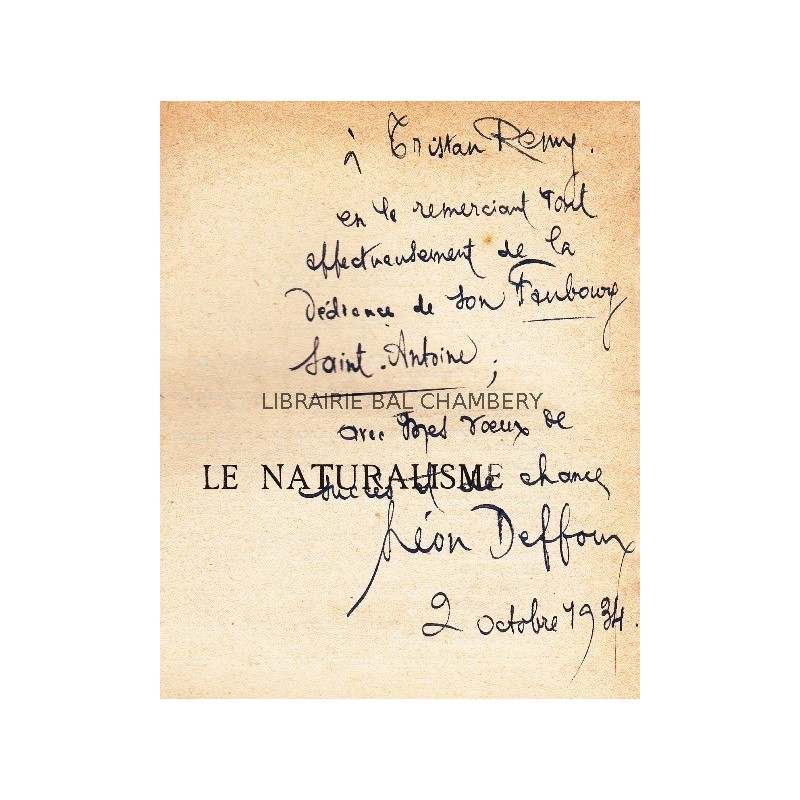 à Tristan Remy.
en le remerciant tout
affectueusement de la
dédicance de son Faubourg
Saint-Antoine,
LIBRAIRIE BAL CHAMBERY
avec mes vœux de
LE NATURALISME
succès et de chance
Léon Deffoux
2 octobre 1934.